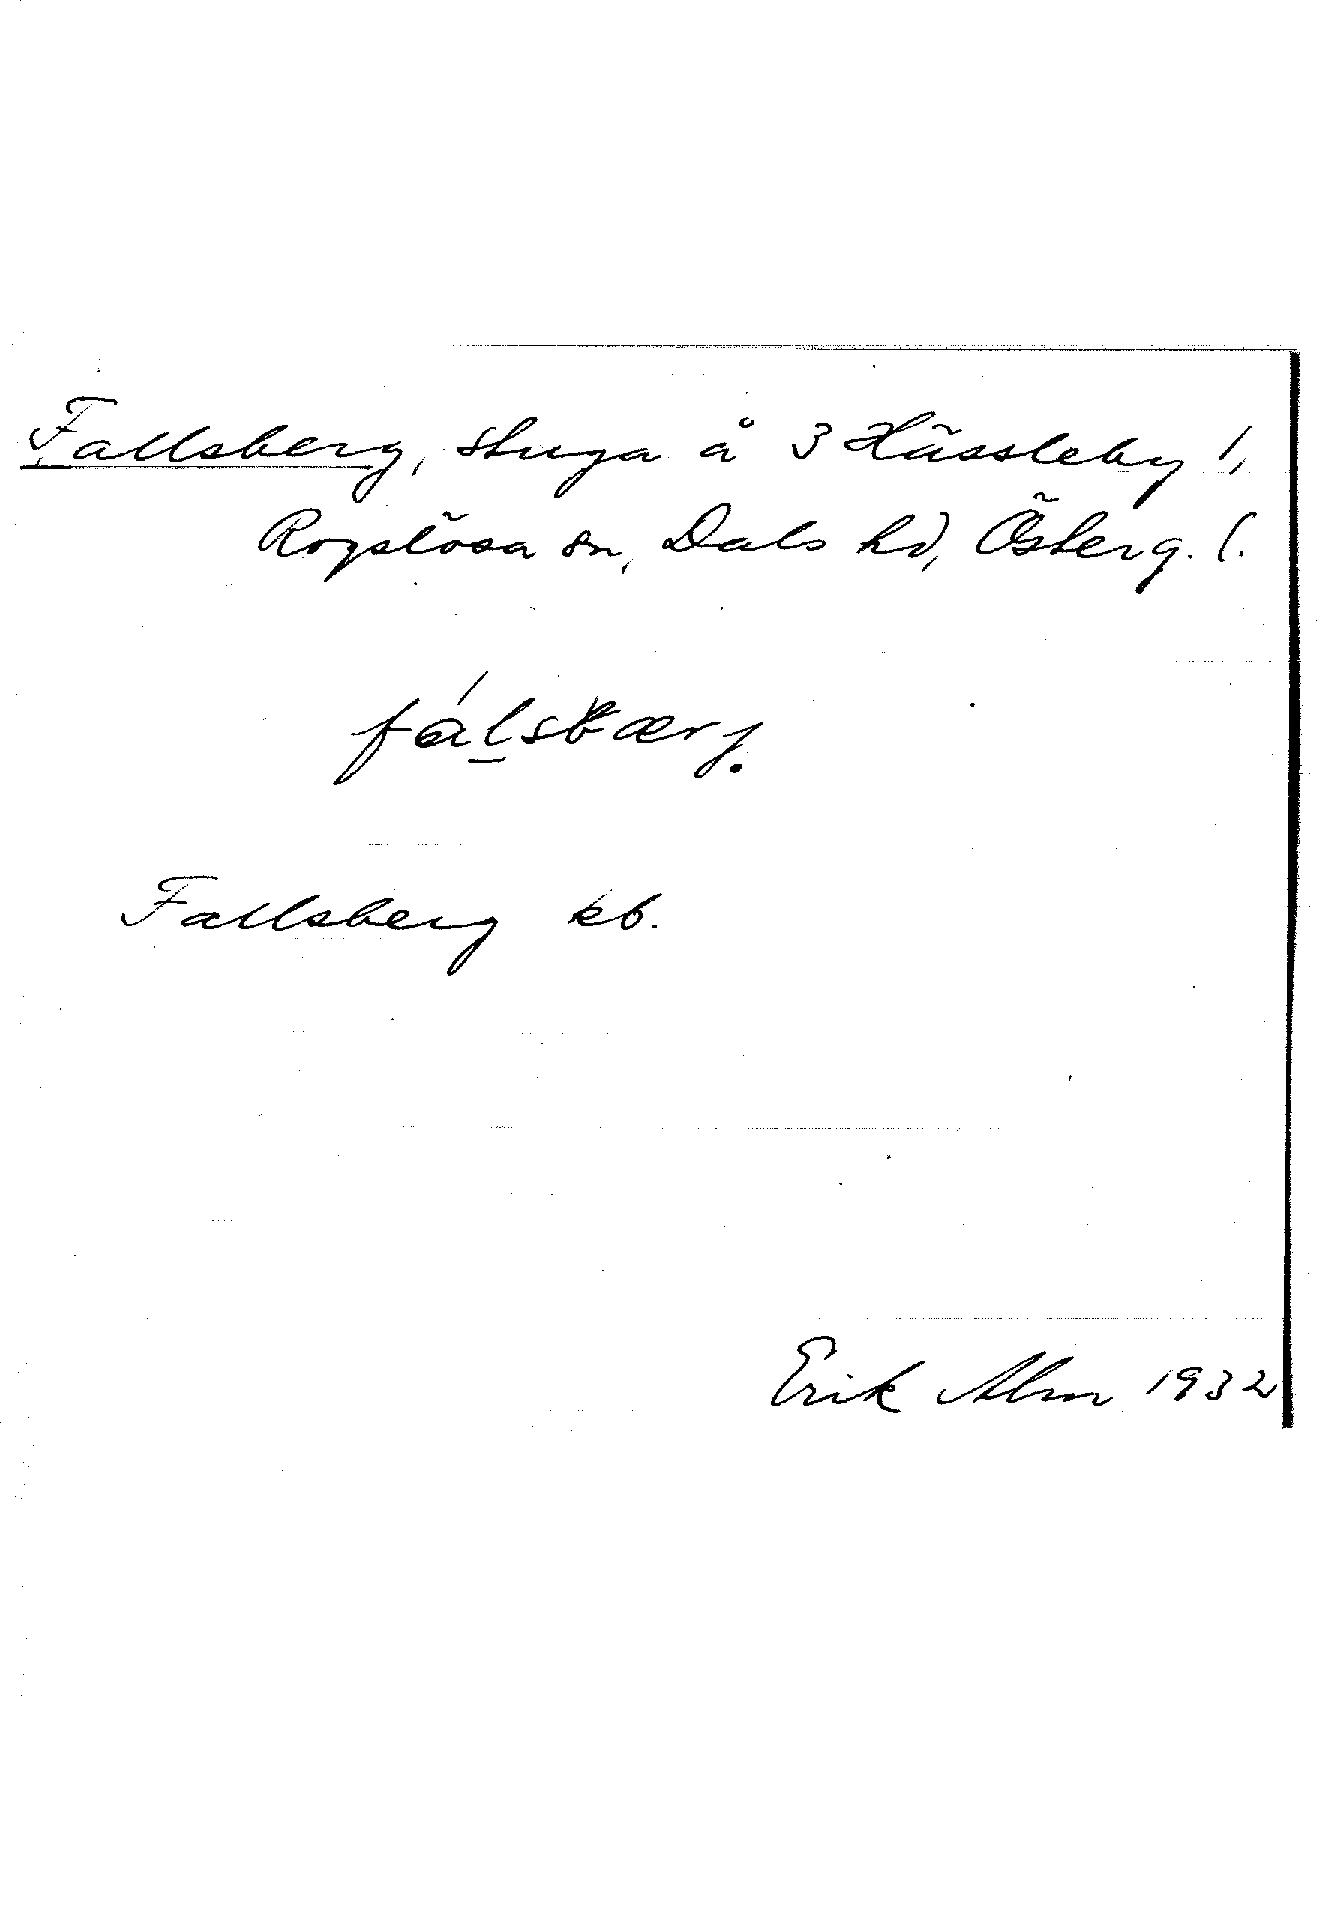 Fallsberg, stuga å 3 Hässleby 1,
Rogslösa sn, Dals hd, Österg. l.
fálsbærj.
Fallsberg kb.
Erik Alm 1932